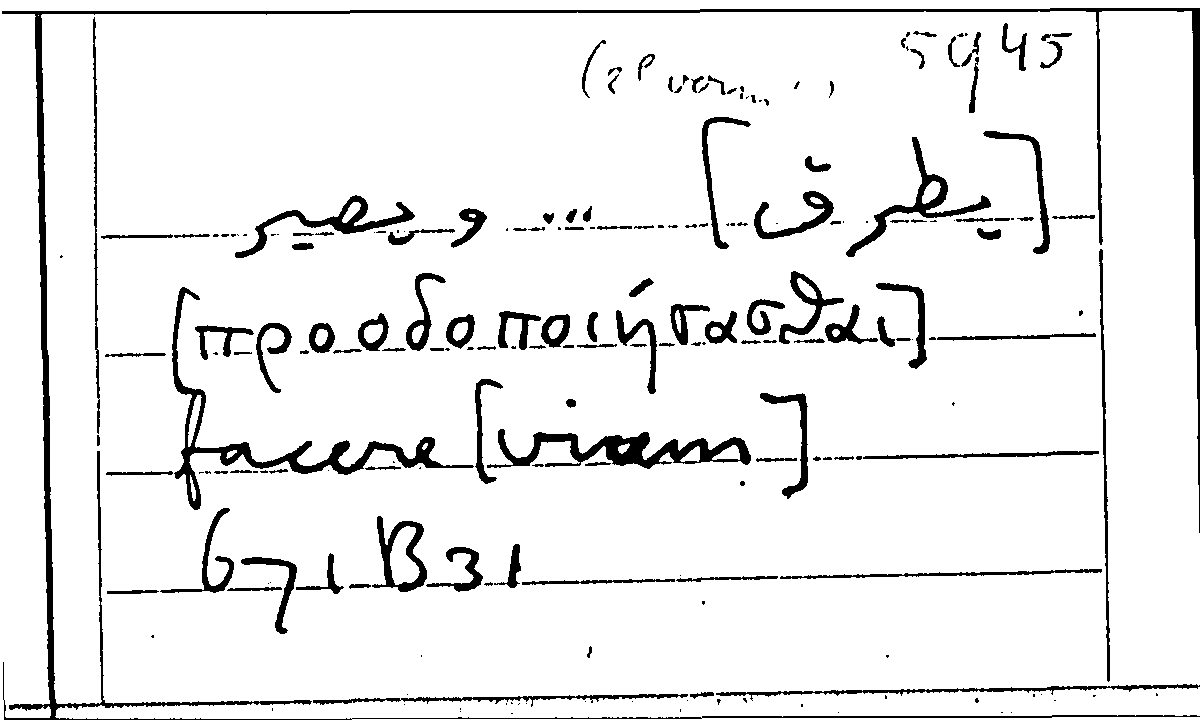 5945
[يطرق] ... ويصير
[προοδοποιήσασθαι]
facere [viam]
671 B 31